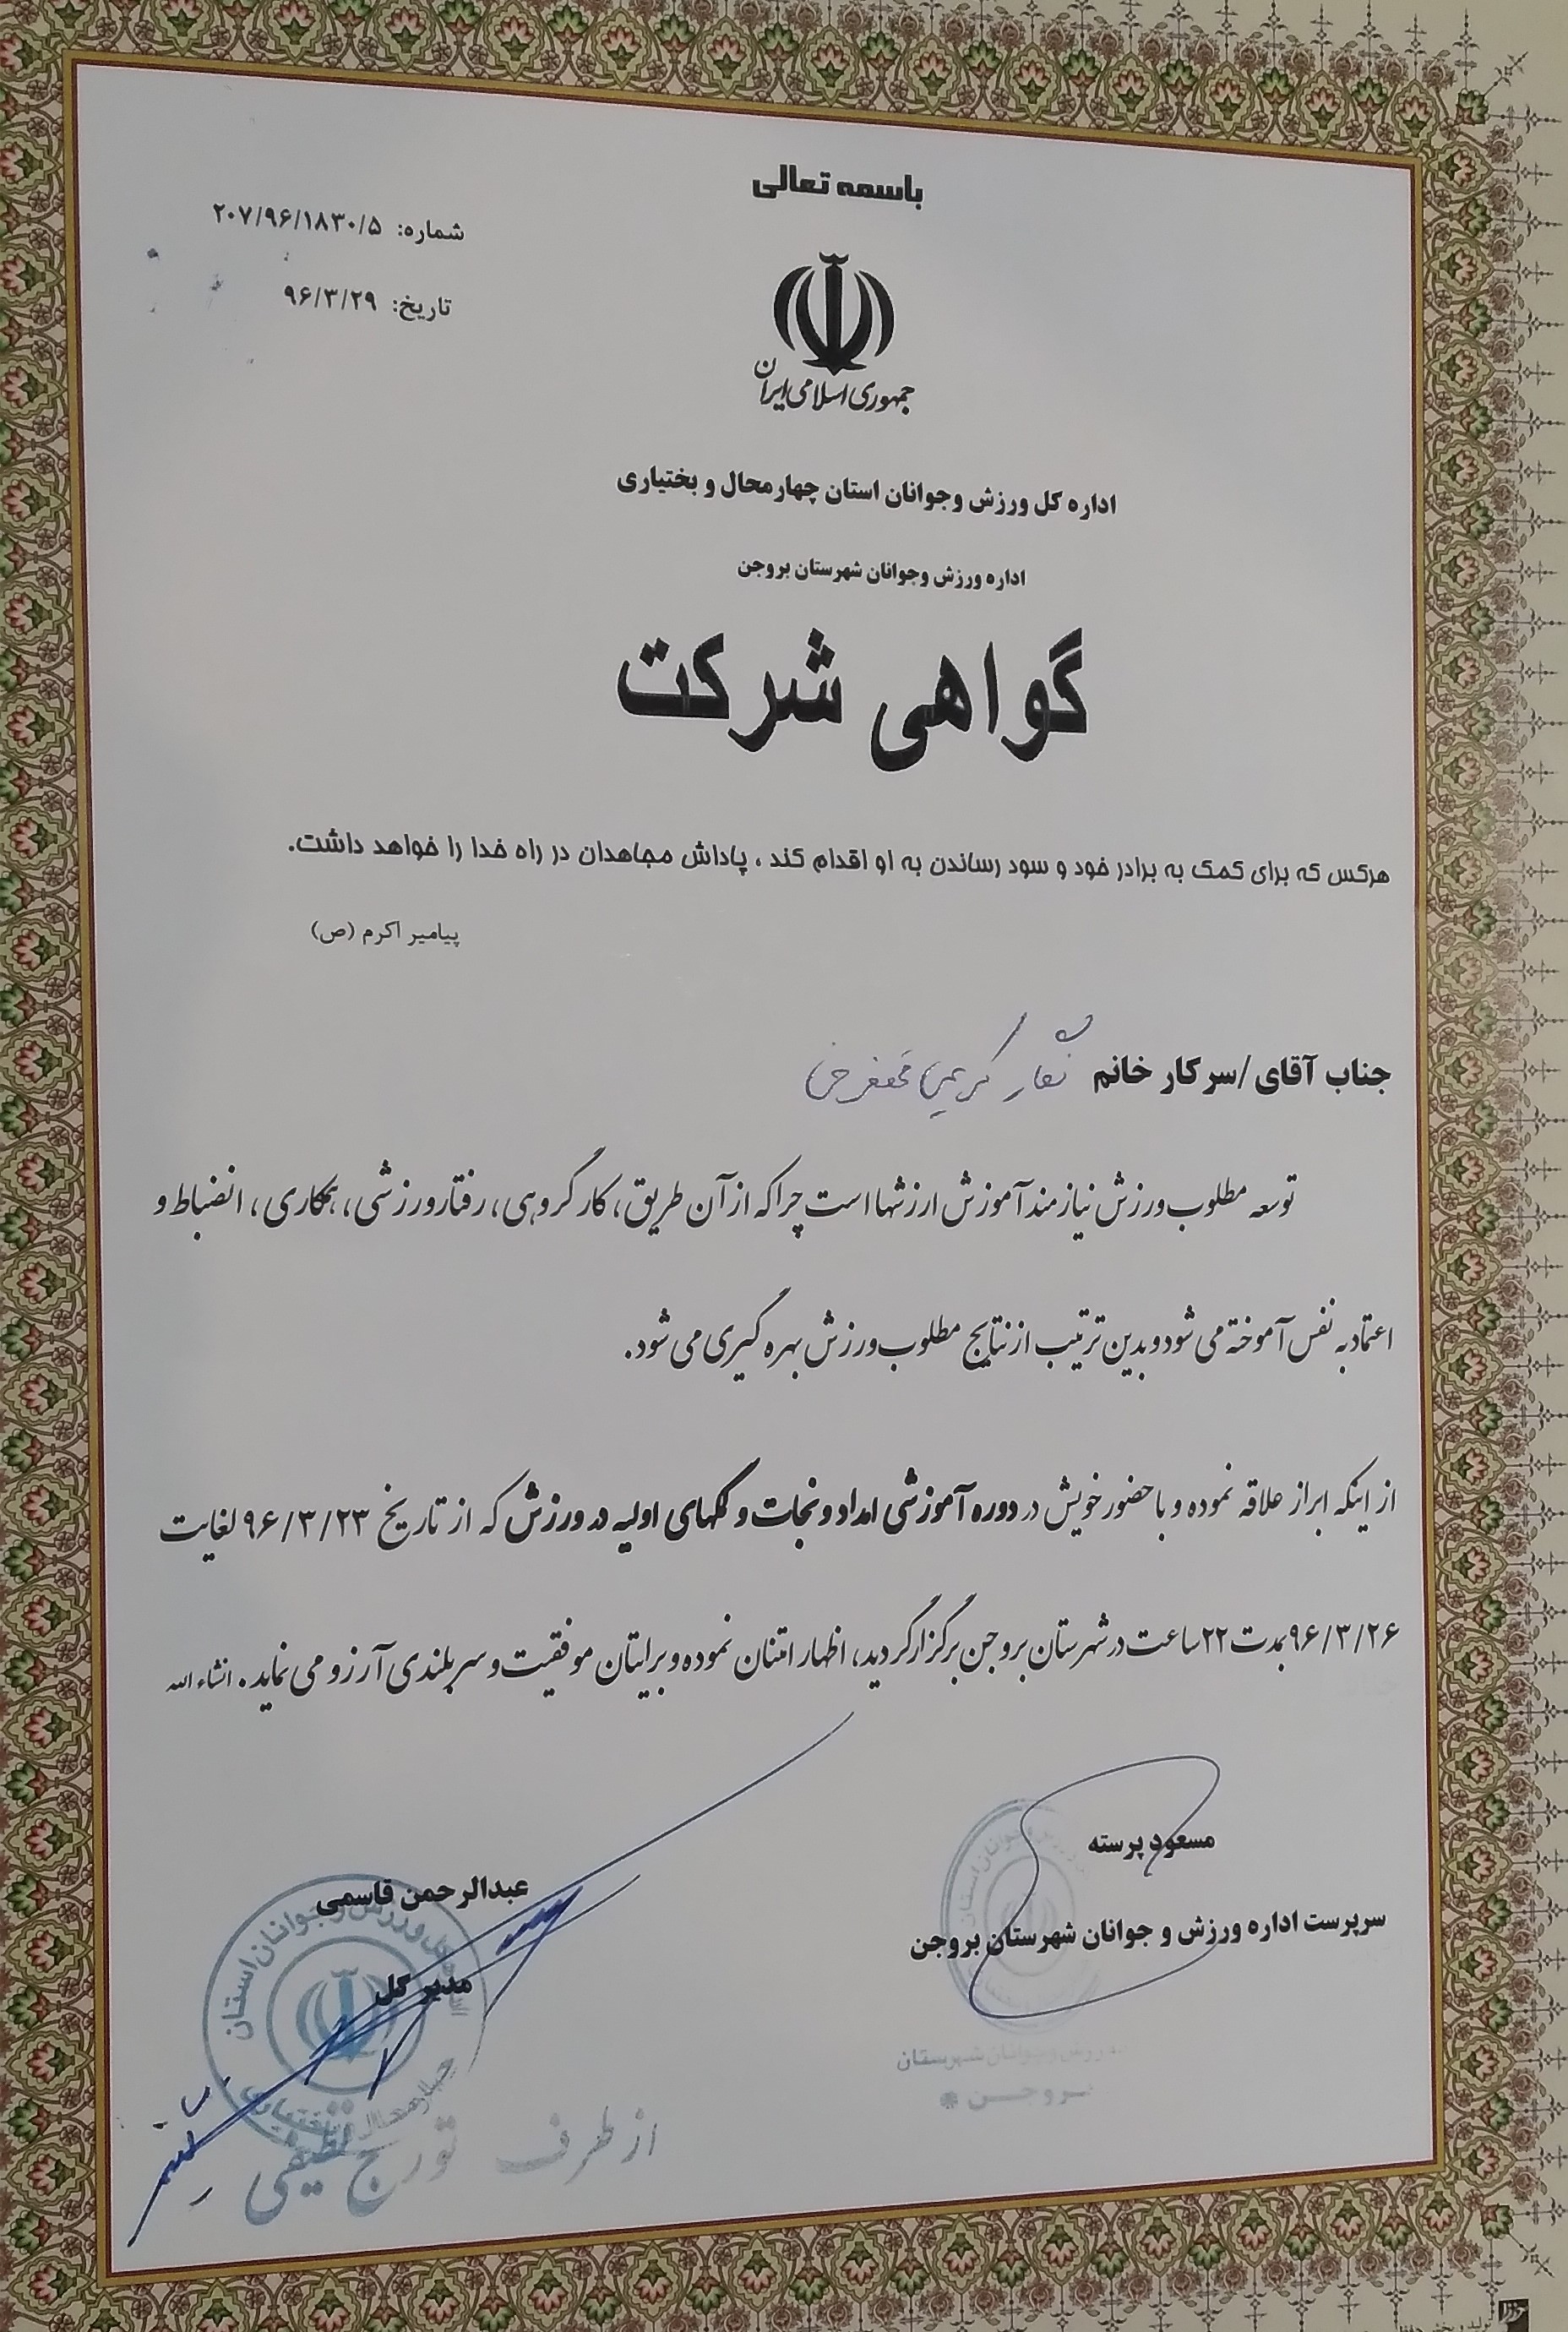 باسمه تعالی
شماره: ۲۰۷/۹۶/۱۸۳۰/۵
تاریخ: ۹۶/۳/۲۹
جمهوری اسلامی ایران
اداره کل ورزش وجوانان استان چهارمحال و بختیاری
اداره ورزش وجوانان شهرستان بروجن
گواهی شرکت
هرکس که برای کمک به برادر خود و سود رساندن به او اقدام کند ، پاداش مجاهدان در راه خدا را خواهد داشت.
پیامبر اکرم (ص)
جناب آقای /سرکار خانم کریمی
توسعه مطلوب ورزش نیازمند آموزش ارزشها است چراکه از آن طریق، کار گروهی، رفتار ورزشی، همکاری، انضباط و
اعتماد به نفس آموخته می شود و بدین ترتیب از نتایج مطلوب ورزش بهره گیری می شود.
از اینکه ابراز علاقه نموده و با حضور خویش در دوره آموزشی امداد و نجات و کمکهای اولیه در ورزش که از تاریخ ۹۶/۳/۲۳ لغایت
۹۶/۳/۲۶ بمدت ۲۲ ساعت در شهرستان بروجن برگزار گردید، اظهار امتنان نموده و برایتان موفقیت و سربلندی آرزو می نماید. انشاء الله
مسعود پرسته
سرپرست اداره ورزش و جوانان شهرستان بروجن
عبدالرحمن قاسمی
مدیر کل
ورزش و جوانان استان
چهارمحال و بختیاری
ورزش و جوانان شهرستان
بروجن
از طرف تورج لطیفی